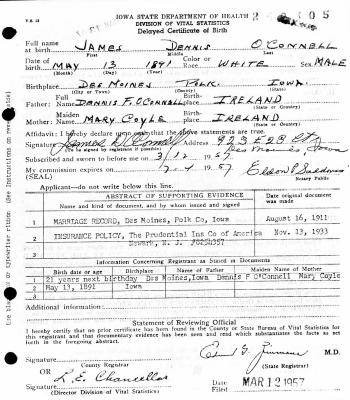 IOWA STATE DEPARTMENT OF HEALTH
DIVISION OF VITAL STATISTICS
Delayed Certificate of Birth
Full name at birth JAMES DENNIS O'CONNELL
First Middle Last
Date of birth MAY 13 1891 Color or Race WHITE Sex MALE
(Month) (Day) (Year)
Birthplace DES MOINES POLK IOWA
(City or Town) (County) (State)
Father: Name DENNIS F. O'CONNELL Birthplace IRELAND
(State or Country)
Mother: Maiden Name MARY COYLE Birthplace IRELAND
(State or Country)
Affidavit: I hereby declare upon oath that the above statements are true.
Signature James D O'Connell Address 923 E 28 Ct
Des Moines, Iowa
Subscribed and sworn to before me on 3/12 1957
My commission expires 7-4 1957
(SEAL) Notary Public
Applicant—do not write below this line.
ABSTRACT OF SUPPORTING EVIDENCE
Name and kind of document, and by whom issued and signed Date original document was made
1 MARRIAGE RECORD, Des Moines, Polk Co, Iowa August 16, 1911
2 INSURANCE POLICY, The Prudential Ins Co of America Nov. 13, 1933
Newark, N. J.
3
Information Concerning Registrant as Stated in Documents
Birth date or age Birthplace Name of Father Maiden Name of Mother
1 21 years next birthday Des Moines, Iowa Dennis F O'Connell Mary Coyle
2 May 13, 1891 Iowa
3
Additional information:
Statement of Reviewing Official
I hereby certify that no prior certificate has been found the County or State Bureau of Vital Statistics for this registrant and that documentary evidence has been seen and read which substantiates the facts as set forth in the above birth record.
Signature M.D.
County Registrar (State Registrar)
OR
Signature L.E. Chancellor Date Filed MAR 12 1957
(Director Division of Vital Statistics)